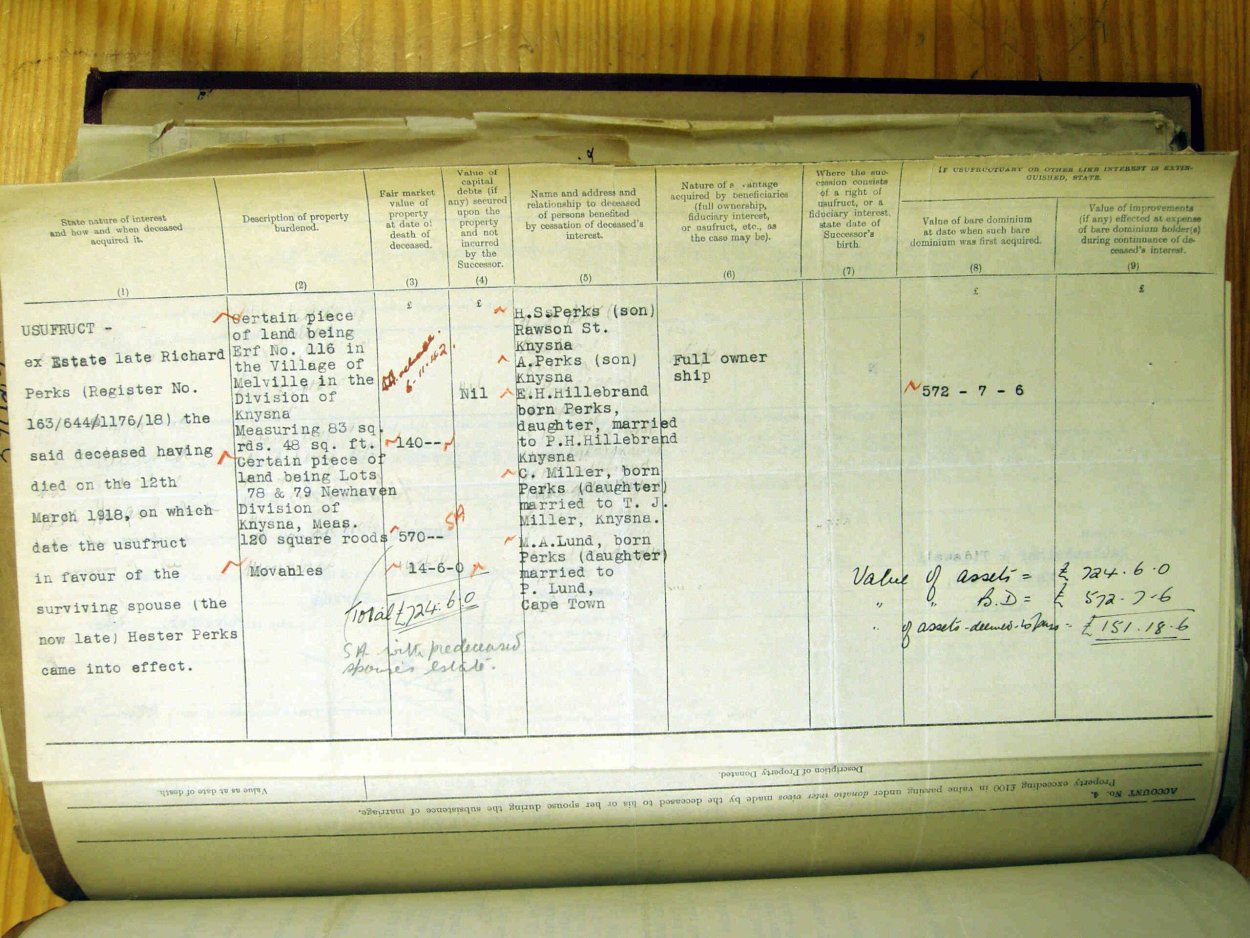 4
State nature of interest
and how and when deceased
acquired it.
(1)
Description of property
burdened.
(2)
Fair market
value of
property
at date of
death of
deceased.
(3)
Value of
capital
debts (if
any) secured
upon the
property
and not
incurred
by the
Successor.
(4)
Name and address and
relationship to deceased
of persons benefited
by cessation of deceased's
interest.
(5)
Nature of advantage
acquired by beneficiaries
(full ownership,
fiduciary interest,
or usufruct, etc., as
the case may be).
(6)
Where the suc-
cession consists
of a right of
usufruct, or a
fiduciary interest,
state date of
Successor's
birth.
(7)
IF USUFRUCTUARY OR OTHER LIKE INTEREST IS EXTIN-
GUISHED, STATE.
Value of bare dominium
at date when such bare
dominium was first acquired.
(8)
Value of improvements
(if any) effected at expense
of bare dominium holder(s)
during continuance of de-
ceased's interest.
(9)
USUFRUCT -
ex Estate late Richard
Perks (Register No.
163/644/1176/18) the
said deceased having
died on the 12th
March 1918, on which
date the usufruct
in favour of the
surviving spouse (the
now late) Hester Perks
came into effect.
Certain piece
of land being
Erf No. 116 in
the Village of
Melville in the
Division of
Knysna
Measuring 83 sq.
rds. 48 sq. ft.
Certain piece of
land being Lots
78 & 79 Newhaven
Division of
Knysna, Meas.
120 square roods
Movables
£
6-11-42
140--
SA
570--
14-6-0
Total £724.6.0
SA with predeceased
spouse's estate.
£
Nil
H.S.Perks (son)
Rawson St.
Knysna
A.Perks (son)
Knysna
E.H.Hillebrand
born Perks,
daughter, married
to P.H.Hillebrand
Knysna
C. Miller, born
Perks (daughter)
married to T. J.
Miller, Knysna.
M.A.Lund, born
Perks (daughter)
married to
P. Lund,
Cape Town
Full owner
ship
£
572 - 7 - 6
£
Value of assets = £ 724.6.0
" " B.D = £ 572.7.6
" of assets-deemed-to pass = £151.18.6
Description of Property Donated.
Value as at date of death.
Property exceeding £100 in value passing under donatio inter vivos made by the deceased to his or her spouse during the subsistence of marriage.
ACCOUNT No. 4.